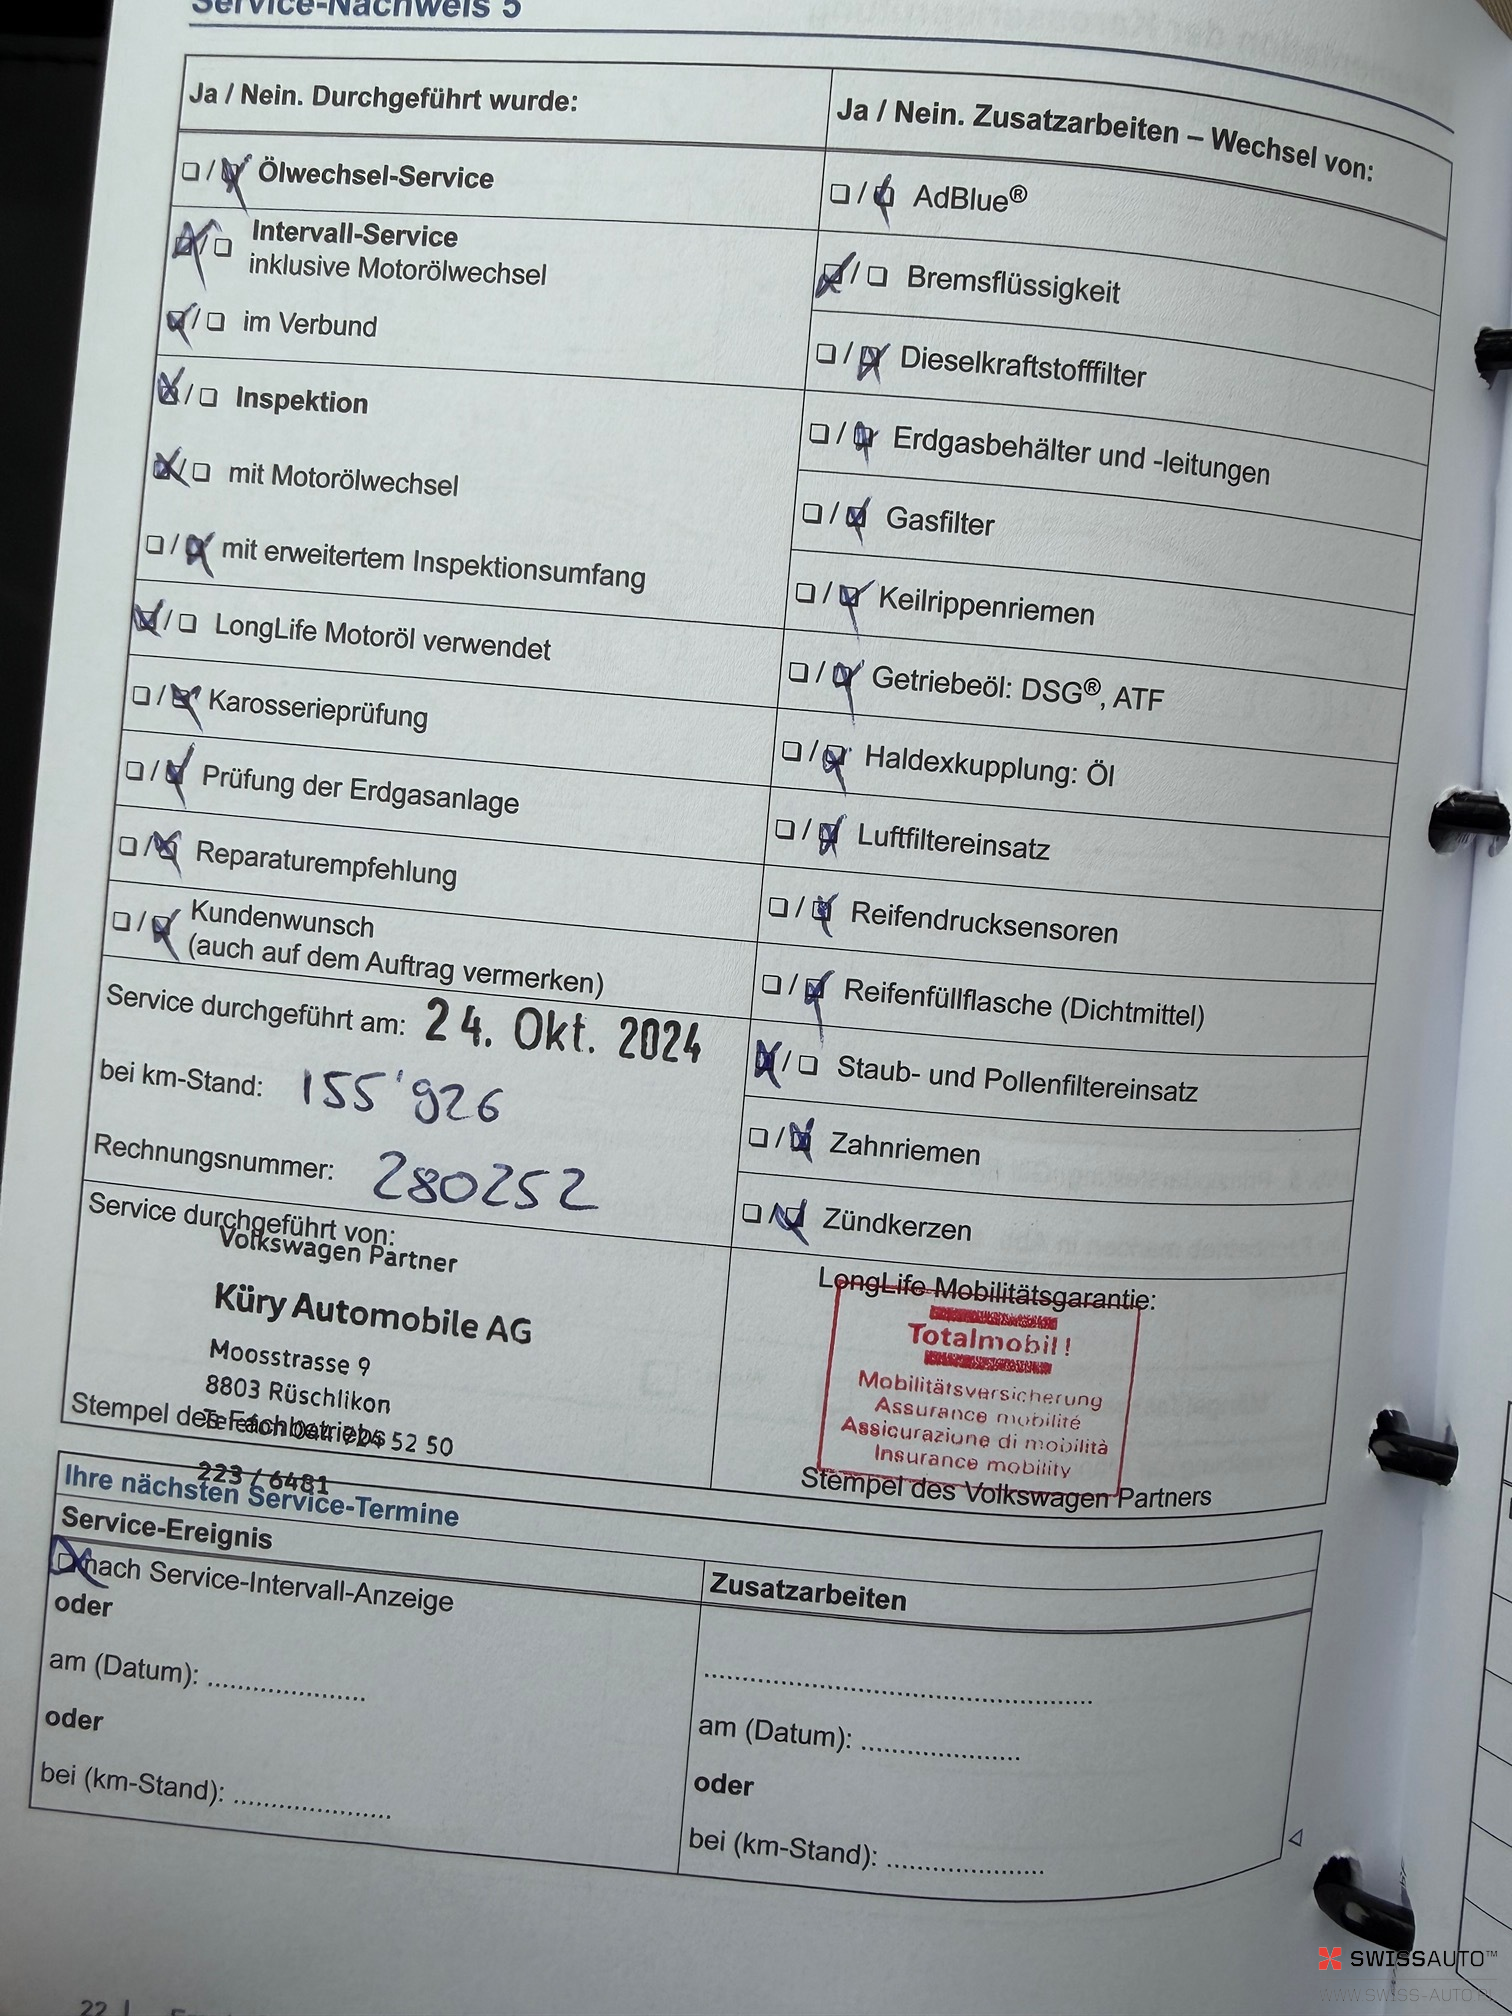 Service-Nachweis 5
Ja / Nein. Durchgeführt wurde:
☐ / ☒ Ölwechsel-Service
☒ / ☐ Intervall-Service
inklusive Motorölwechsel
☒ / ☐ im Verbund
☒ / ☐ Inspektion
☒ / ☐ mit Motorölwechsel
☐ / ☒ mit erweitertem Inspektionsumfang
☒ / ☐ LongLife Motoröl verwendet
☐ / ☒ Karosserieprüfung
☐ / ☒ Prüfung der Erdgasanlage
☐ / ☒ Reparaturempfehlung
☐ / ☒ Kundenwunsch
(auch auf dem Auftrag vermerken)
Service durchgeführt am: 24. Okt. 2024
bei km-Stand: 155'926
Rechnungsnummer: 280252
Service durchgeführt von:
Volkswagen Partner
Küry Automobile AG
Moosstrasse 9
8803 Rüschlikon
Stempel des Fachbetriebs
Telefon 044 724 52 50
223 / 6481
Ja / Nein. Zusatzarbeiten – Wechsel von:
☐ / ☒ AdBlue®
☒ / ☐ Bremsflüssigkeit
☐ / ☒ Dieselkraftstofffilter
☐ / ☒ Erdgasbehälter und -leitungen
☐ / ☒ Gasfilter
☐ / ☒ Keilrippenriemen
☐ / ☒ Getriebeöl: DSG®, ATF
☐ / ☒ Haldexkupplung: Öl
☐ / ☒ Luftfiltereinsatz
☐ / ☒ Reifendrucksensoren
☐ / ☒ Reifenfüllflasche (Dichtmittel)
☒ / ☐ Staub- und Pollenfiltereinsatz
☐ / ☒ Zahnriemen
☐ / ☒ Zündkerzen
LongLife Mobilitätsgarantie:
Totalmobil!
Mobilitätsversicherung
Assurance mobilité
Assicurazione di mobilità
Insurance mobility
Stempel des Volkswagen Partners
Ihre nächsten Service-Termine
Service-Ereignis
☒ nach Service-Intervall-Anzeige
oder
am (Datum): .....................
oder
bei (km-Stand): .....................
Zusatzarbeiten
....................................................
am (Datum): .....................
oder
bei (km-Stand): .....................
22 |
SWISSAUTO™